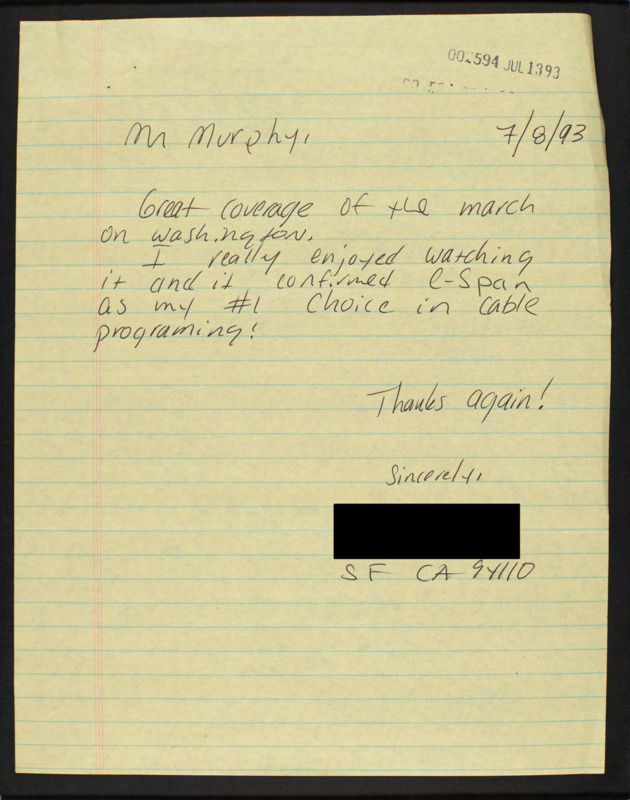 002594 JUL 13 93
Mr Murphy,
7/8/93
Great coverage of the march
on washington.
I really enjoyed watching
it and it confirmed C-Span
as my #1 Choice in cable
programing!
Thanks again!
Sincerely,
SF CA 94110